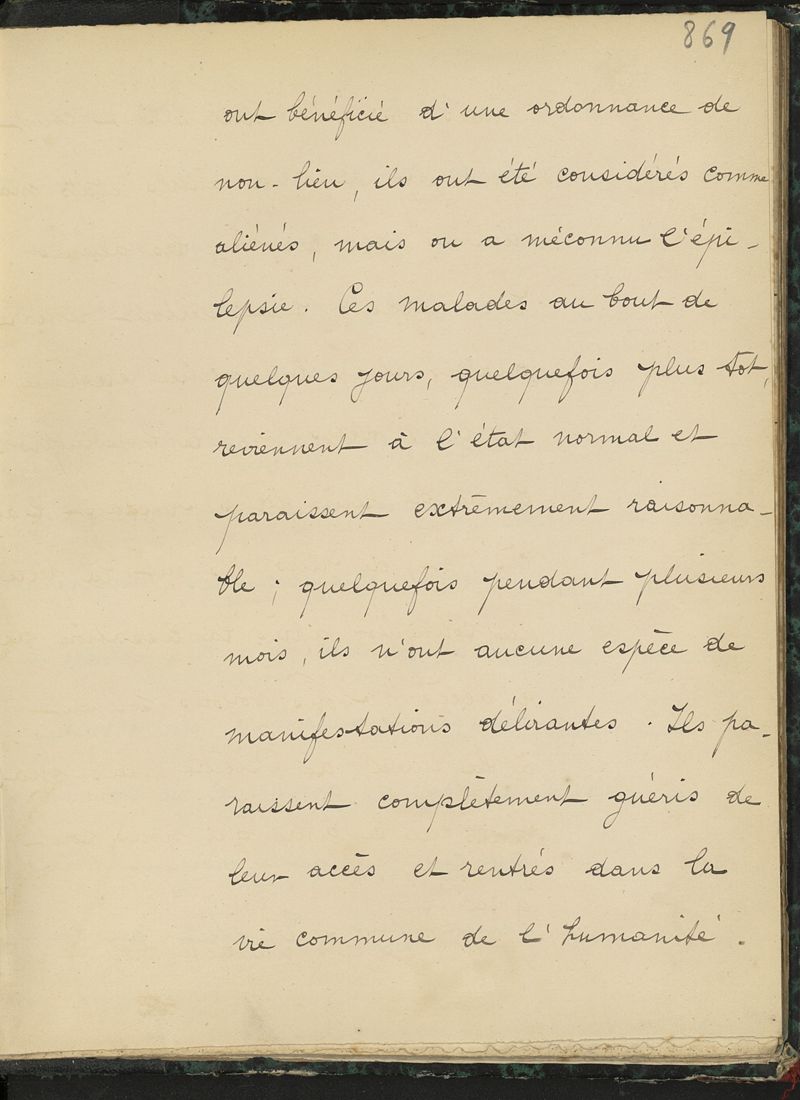 869
ont bénéficié d'une ordonnance de
non-lieu, ils ont été considérés comme
aliénés, mais on a méconnu l'épi-
lepsie. Ces malades au bout de
quelques jours, quelquefois plus tot,
reviennent à l'état normal et
paraissent extrêmement raisonna-
ble ; quelquefois pendant plusieurs
mois, ils n'ont aucune espèce de
manifestations délirantes. Ils pa-
raissent complètement guéris de
leur accès et rentrés dans la
vie commune de l'humanité.